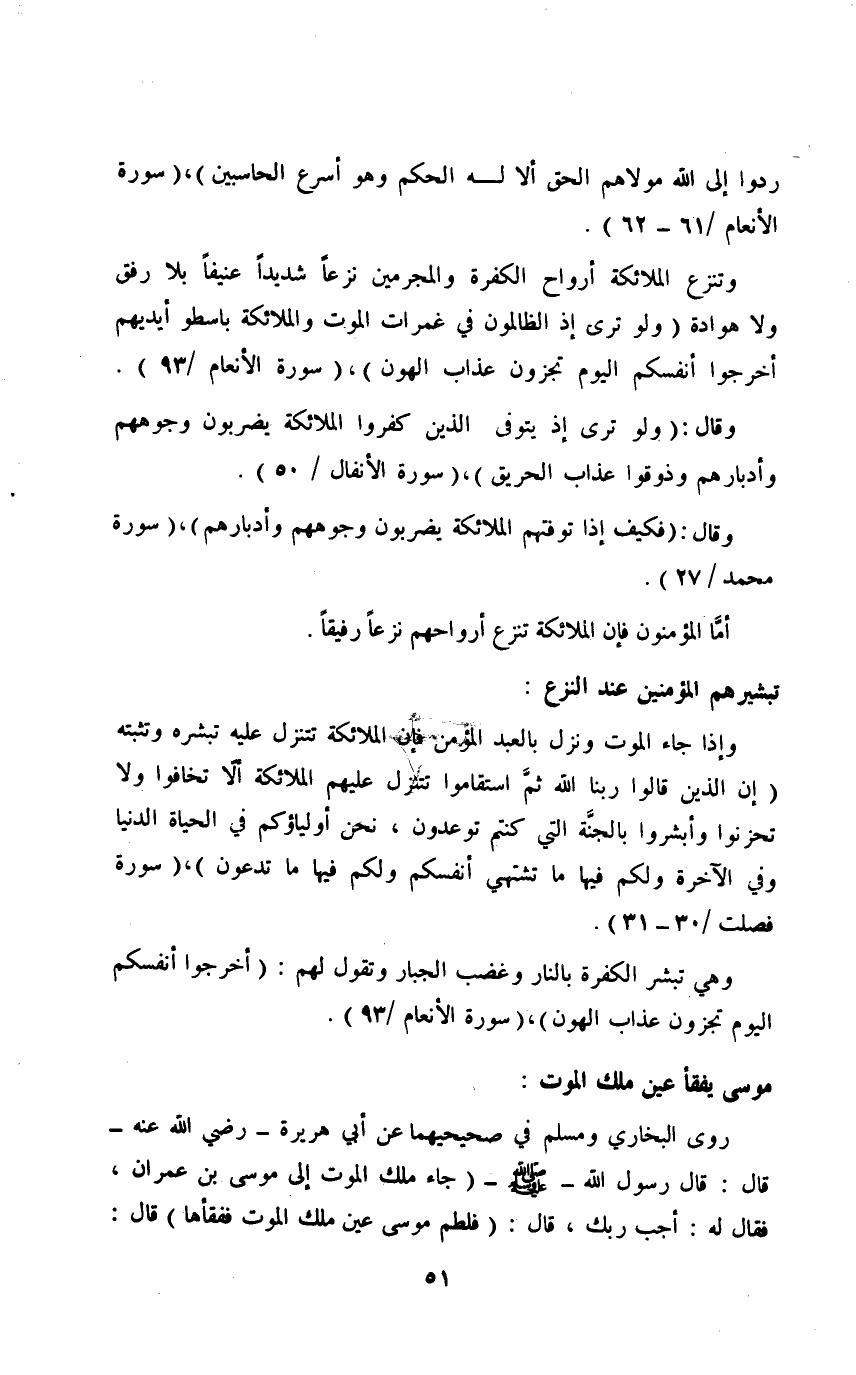 ردوا إلى الله مولاهم الحق ألا لـــه الحكم وهو أسرع الحاسبين )،( سورة
الأنعام /٦١ – ٦٢ ) .
وتنزع الملائكة أرواح الكفرة والمجرمين نزعاً شديداً عنيفاً بلا رفق
ولا هوادة ( ولو ترى إذ الظالمون في غمرات الموت والملائكة باسطو أيديهم
أخرجوا أنفسكم اليوم تجزون عذاب الهون )،( سورة الأنعام /٩٣ ) .
وقال :( ولو ترى إذ يتوفى الذين كفروا الملائكة يضربون وجوههم
وأدبارهم وذوقوا عذاب الحريق )،( سورة الأنفال / ٥٠ ) .
وقال :( فكيف إذا توفتهم الملائكة يضربون وجوههم وأدبارهم )،( سورة
محمد / ٢٧ ) .
أمَّا المؤمنون فإن الملائكة تنزع أرواحهم نزعاً رفيقاً .
تبشيرهم المؤمنين عند النزع :
وإذا جاء الموت ونزل بالعبد المؤمن فإن الملائكة تتنزل عليه تبشره وتثبته
( إن الذين قالوا ربنا الله ثمَّ استقاموا تتنزل عليهم الملائكة ألّا تخافوا ولا
تحزنوا وأبشروا بالجنَّة التي كنتم توعدون ، نحن أولياؤكم في الحياة الدنيا
وفي الآخرة ولكم فيها ما تشتهي أنفسكم ولكم فيها ما تدعون )،( سورة
فصلت /٣٠ – ٣١ ) .
وهي تبشر الكفرة بالنار وغضب الجبار وتقول لهم : ( أخرجوا أنفسكم
اليوم تجزون عذاب الهون )،( سورة الأنعام /٩٣ ) .
موسى يفقأ عين ملك الموت :
روى البخاري ومسلم في صحيحيهما عن أبي هريرة – رضي الله عنه –
قال : قال رسول الله – ﷺ – ( جاء ملك الموت إلى موسى بن عمران ،
فقال له : أجب ربك ، قال : ( فلطم موسى عين ملك الموت ففقأها ) قال :
٥١